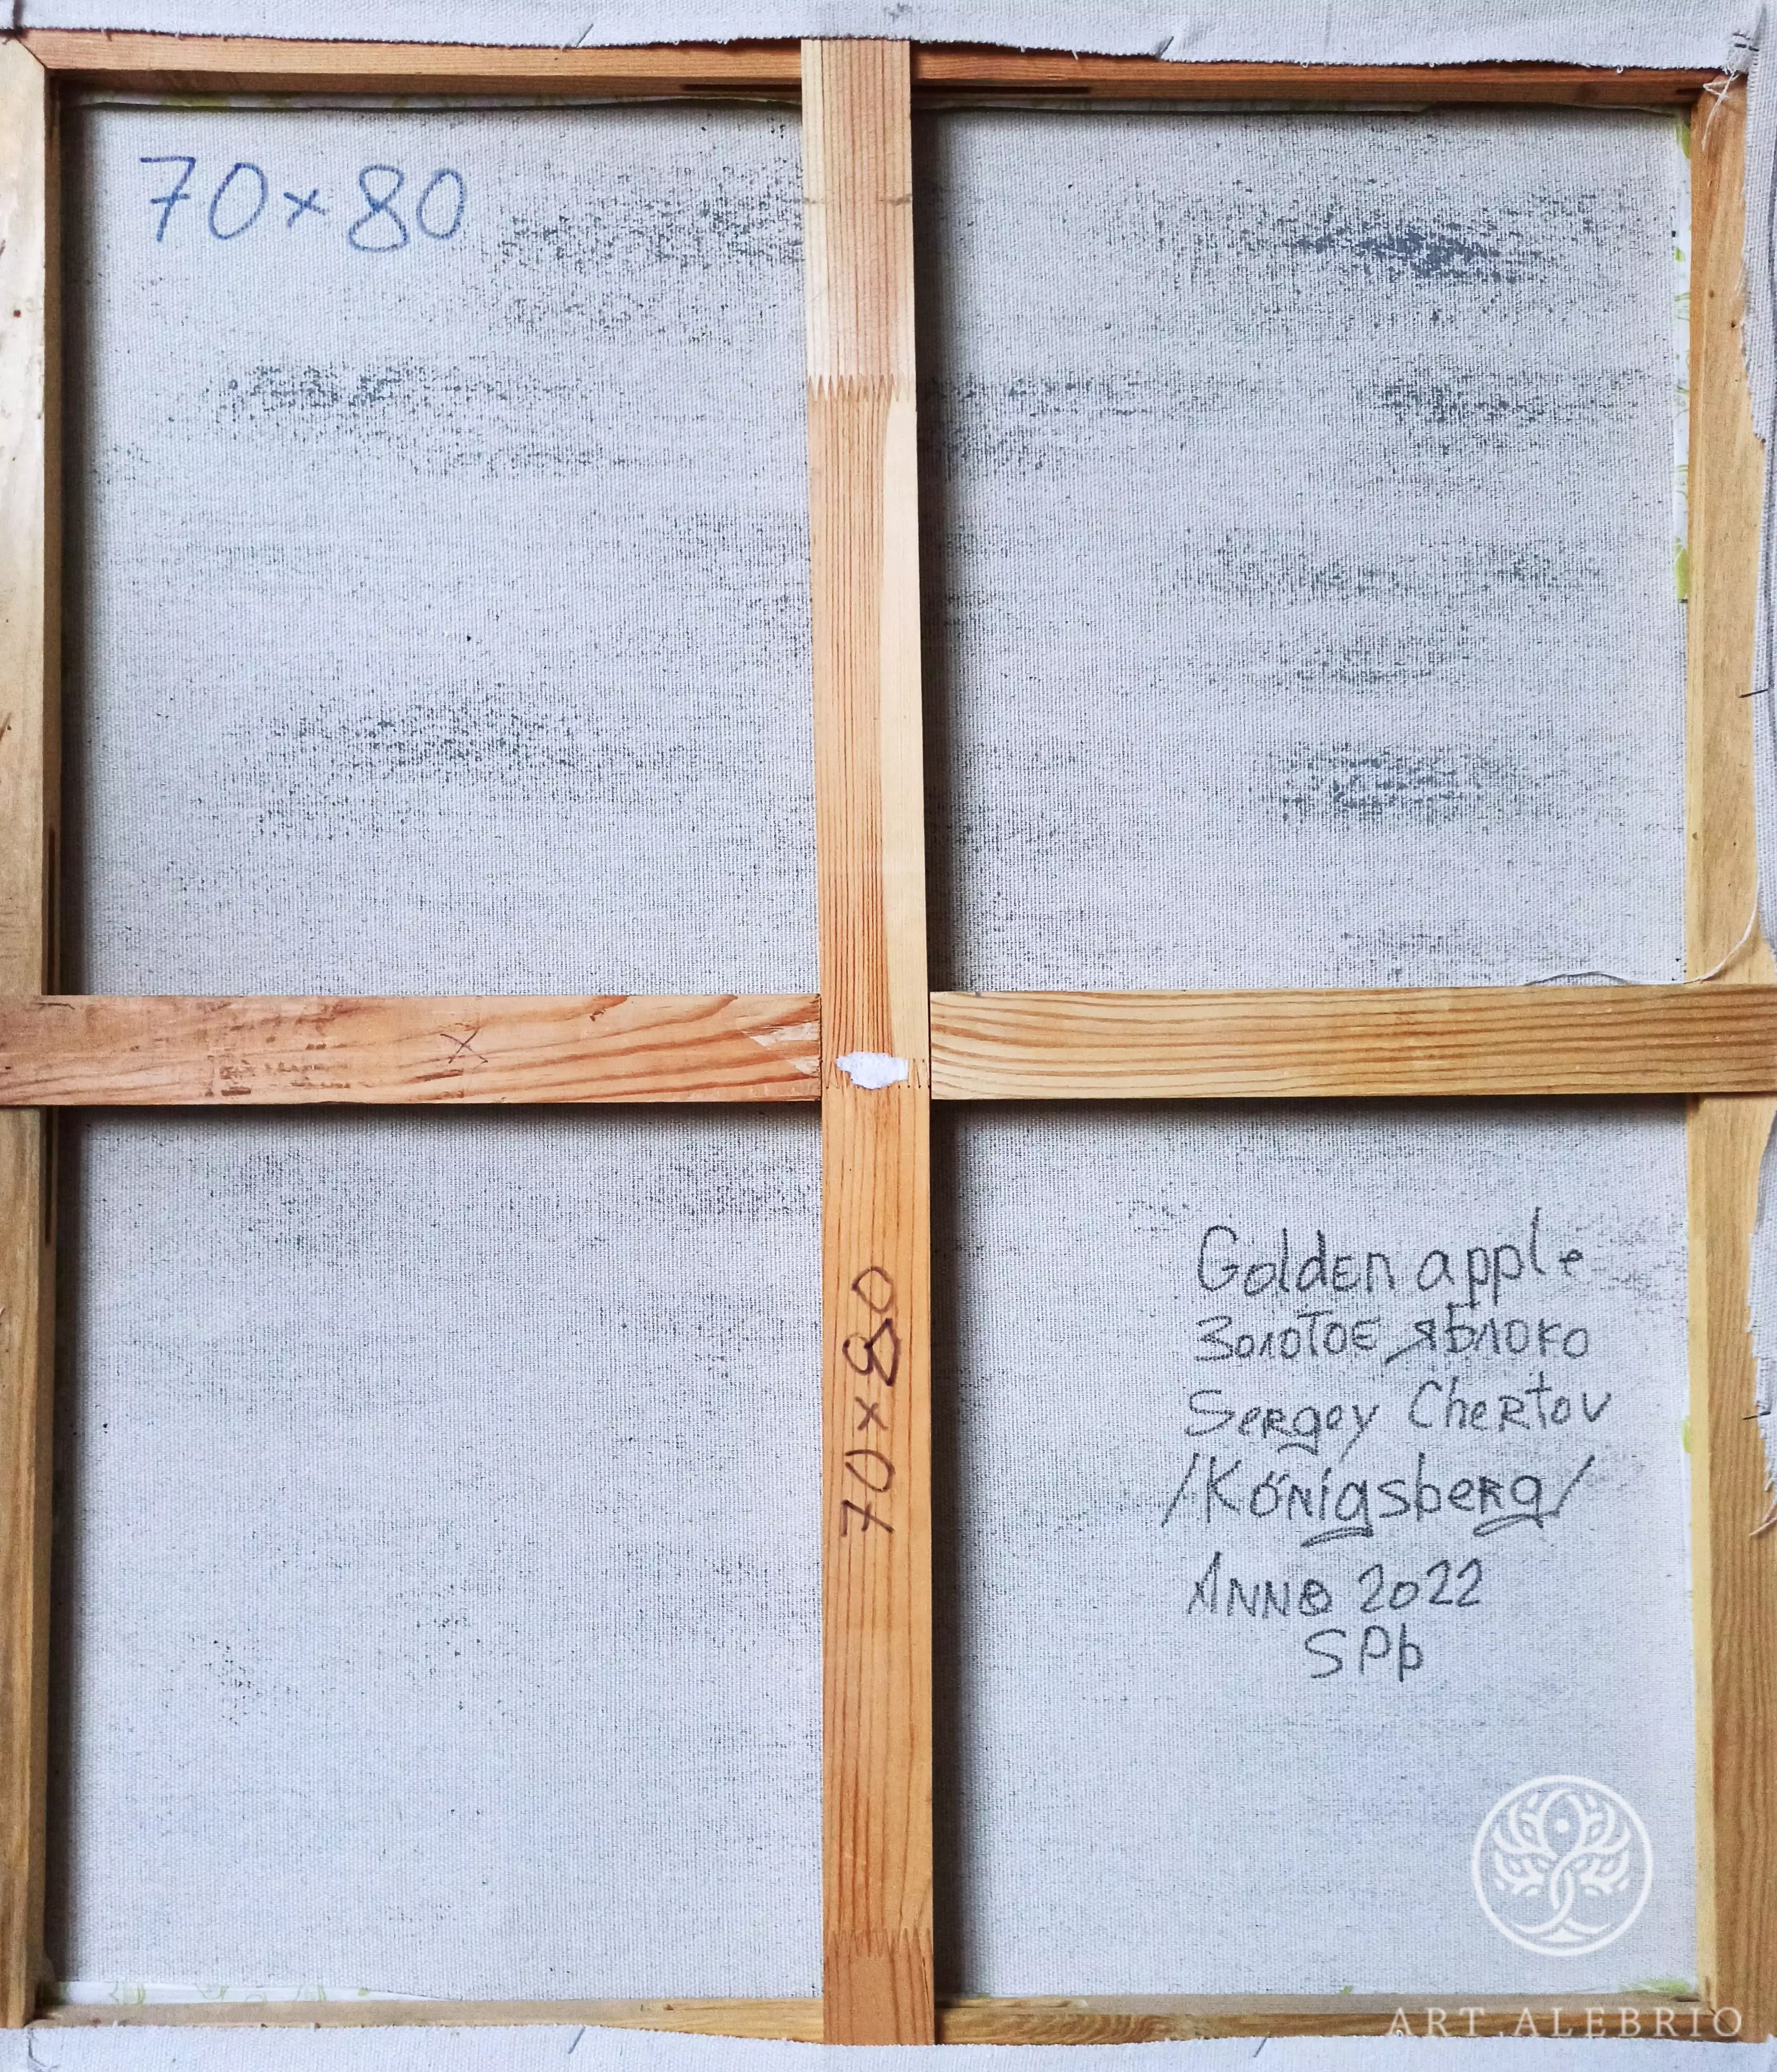 70×80
70×80
Golden apple
Золотое яблоко
Sergey Chertov
/Königsberg/
Anno 2022
SPb
ART.ALEBRIO